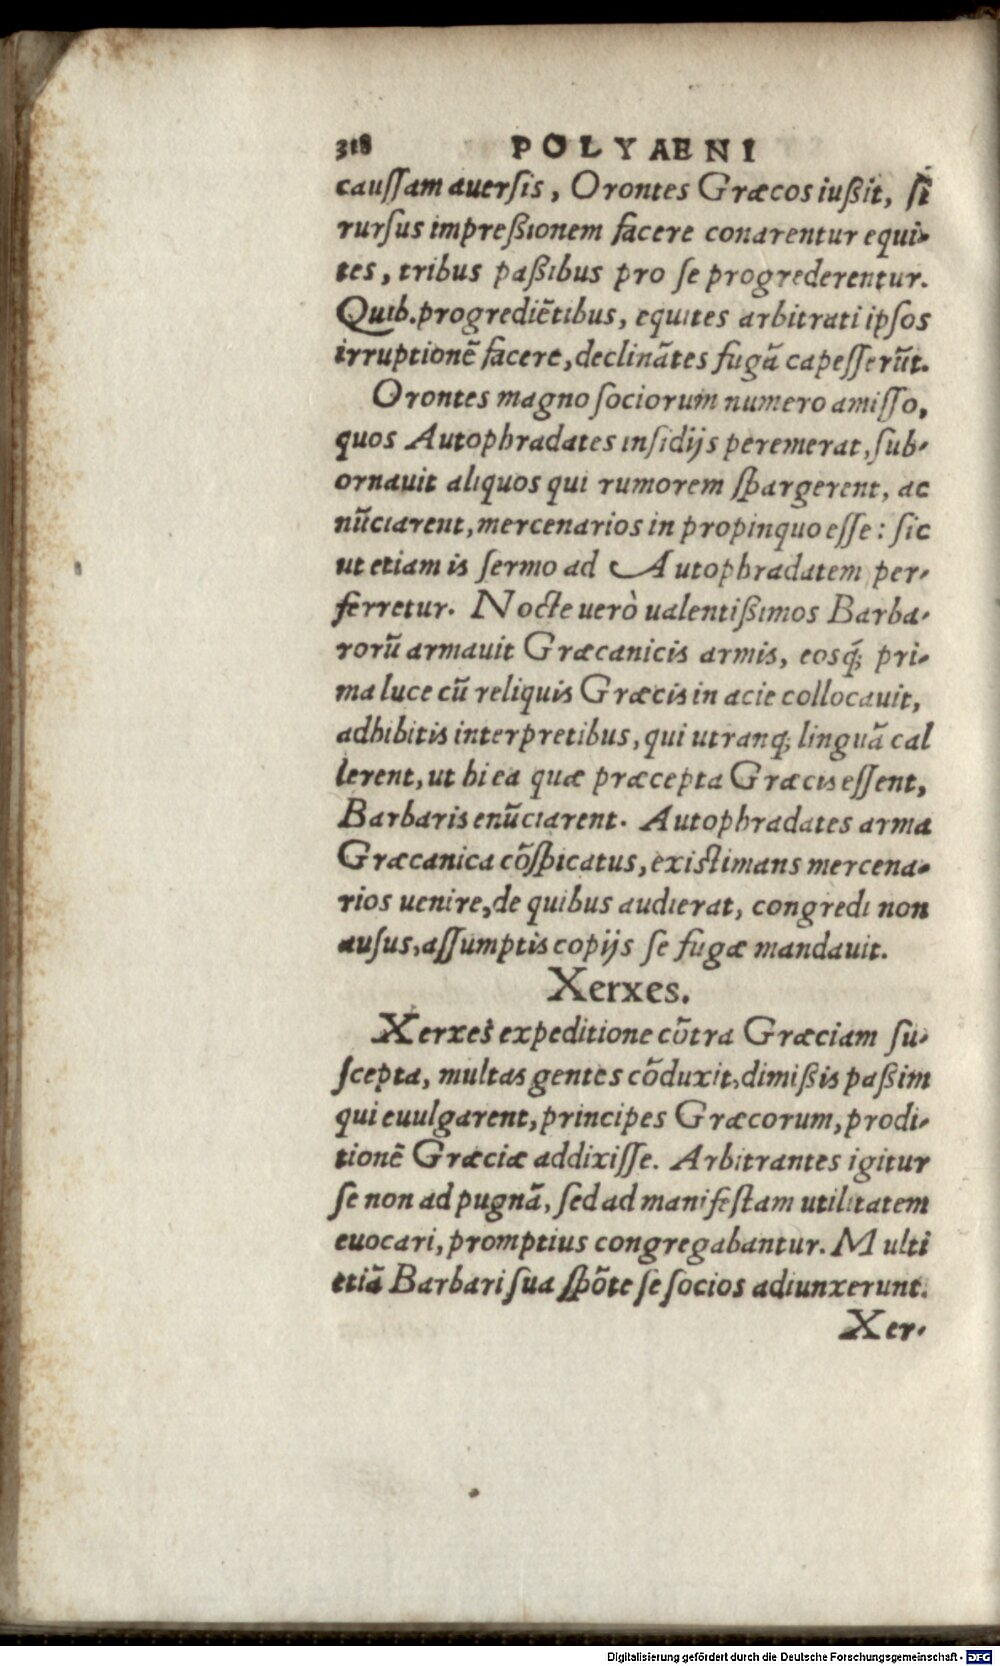 318 POLYAENI
caussam auersis, Orontes Græcos iußit, si
rursus impreßionem facere conarentur equi-
tes, tribus paßibus pro se progrederentur.
Quib. progrediẽtibus, equites arbitrati ipsos
irruptionẽ facere, declinãtes fugã capesserũt.
Orontes magno sociorum numero amisso,
quos Autophradates insidijs peremerat, sub-
ornauit aliquos qui rumorem spargerent, ac
nũciarent, mercenarios in propinquo esse: sic
ut etiam is sermo ad Autophradatem per-
ferretur. Nocte uerò ualentißimos Barba-
rorũ armauit Græcanicis armis, eosq́; pri-
ma luce cũ reliquis Græcis in acie collocauit,
adhibitis interpretibus, qui utranq; linguã cal
lerent, ut hi ea quæ præcepta Græcis essent,
Barbaris enũciarent. Autophradates arma
Græcanica cõspicatus, existimans mercena-
rios uenire, de quibus audierat, congredi non
ausus, assumptis copijs se fugæ mandauit.
Xerxes.
Xerxes expeditione cõtra Græciam su-
scepta, multas gentes cõduxit, dimißis paßim
qui euulgarent, principes Græcorum, prodi-
tionẽ Græciæ addixisse. Arbitrantes igitur
se non ad pugnã, sed ad manifestam utilitatem
euocari, promptius congregabantur. Multi
etiã Barbari sua spõte se socios adiunxerunt.
Xer-
Digitalisierung gefördert durch die Deutsche Forschungsgemeinschaft - DFG